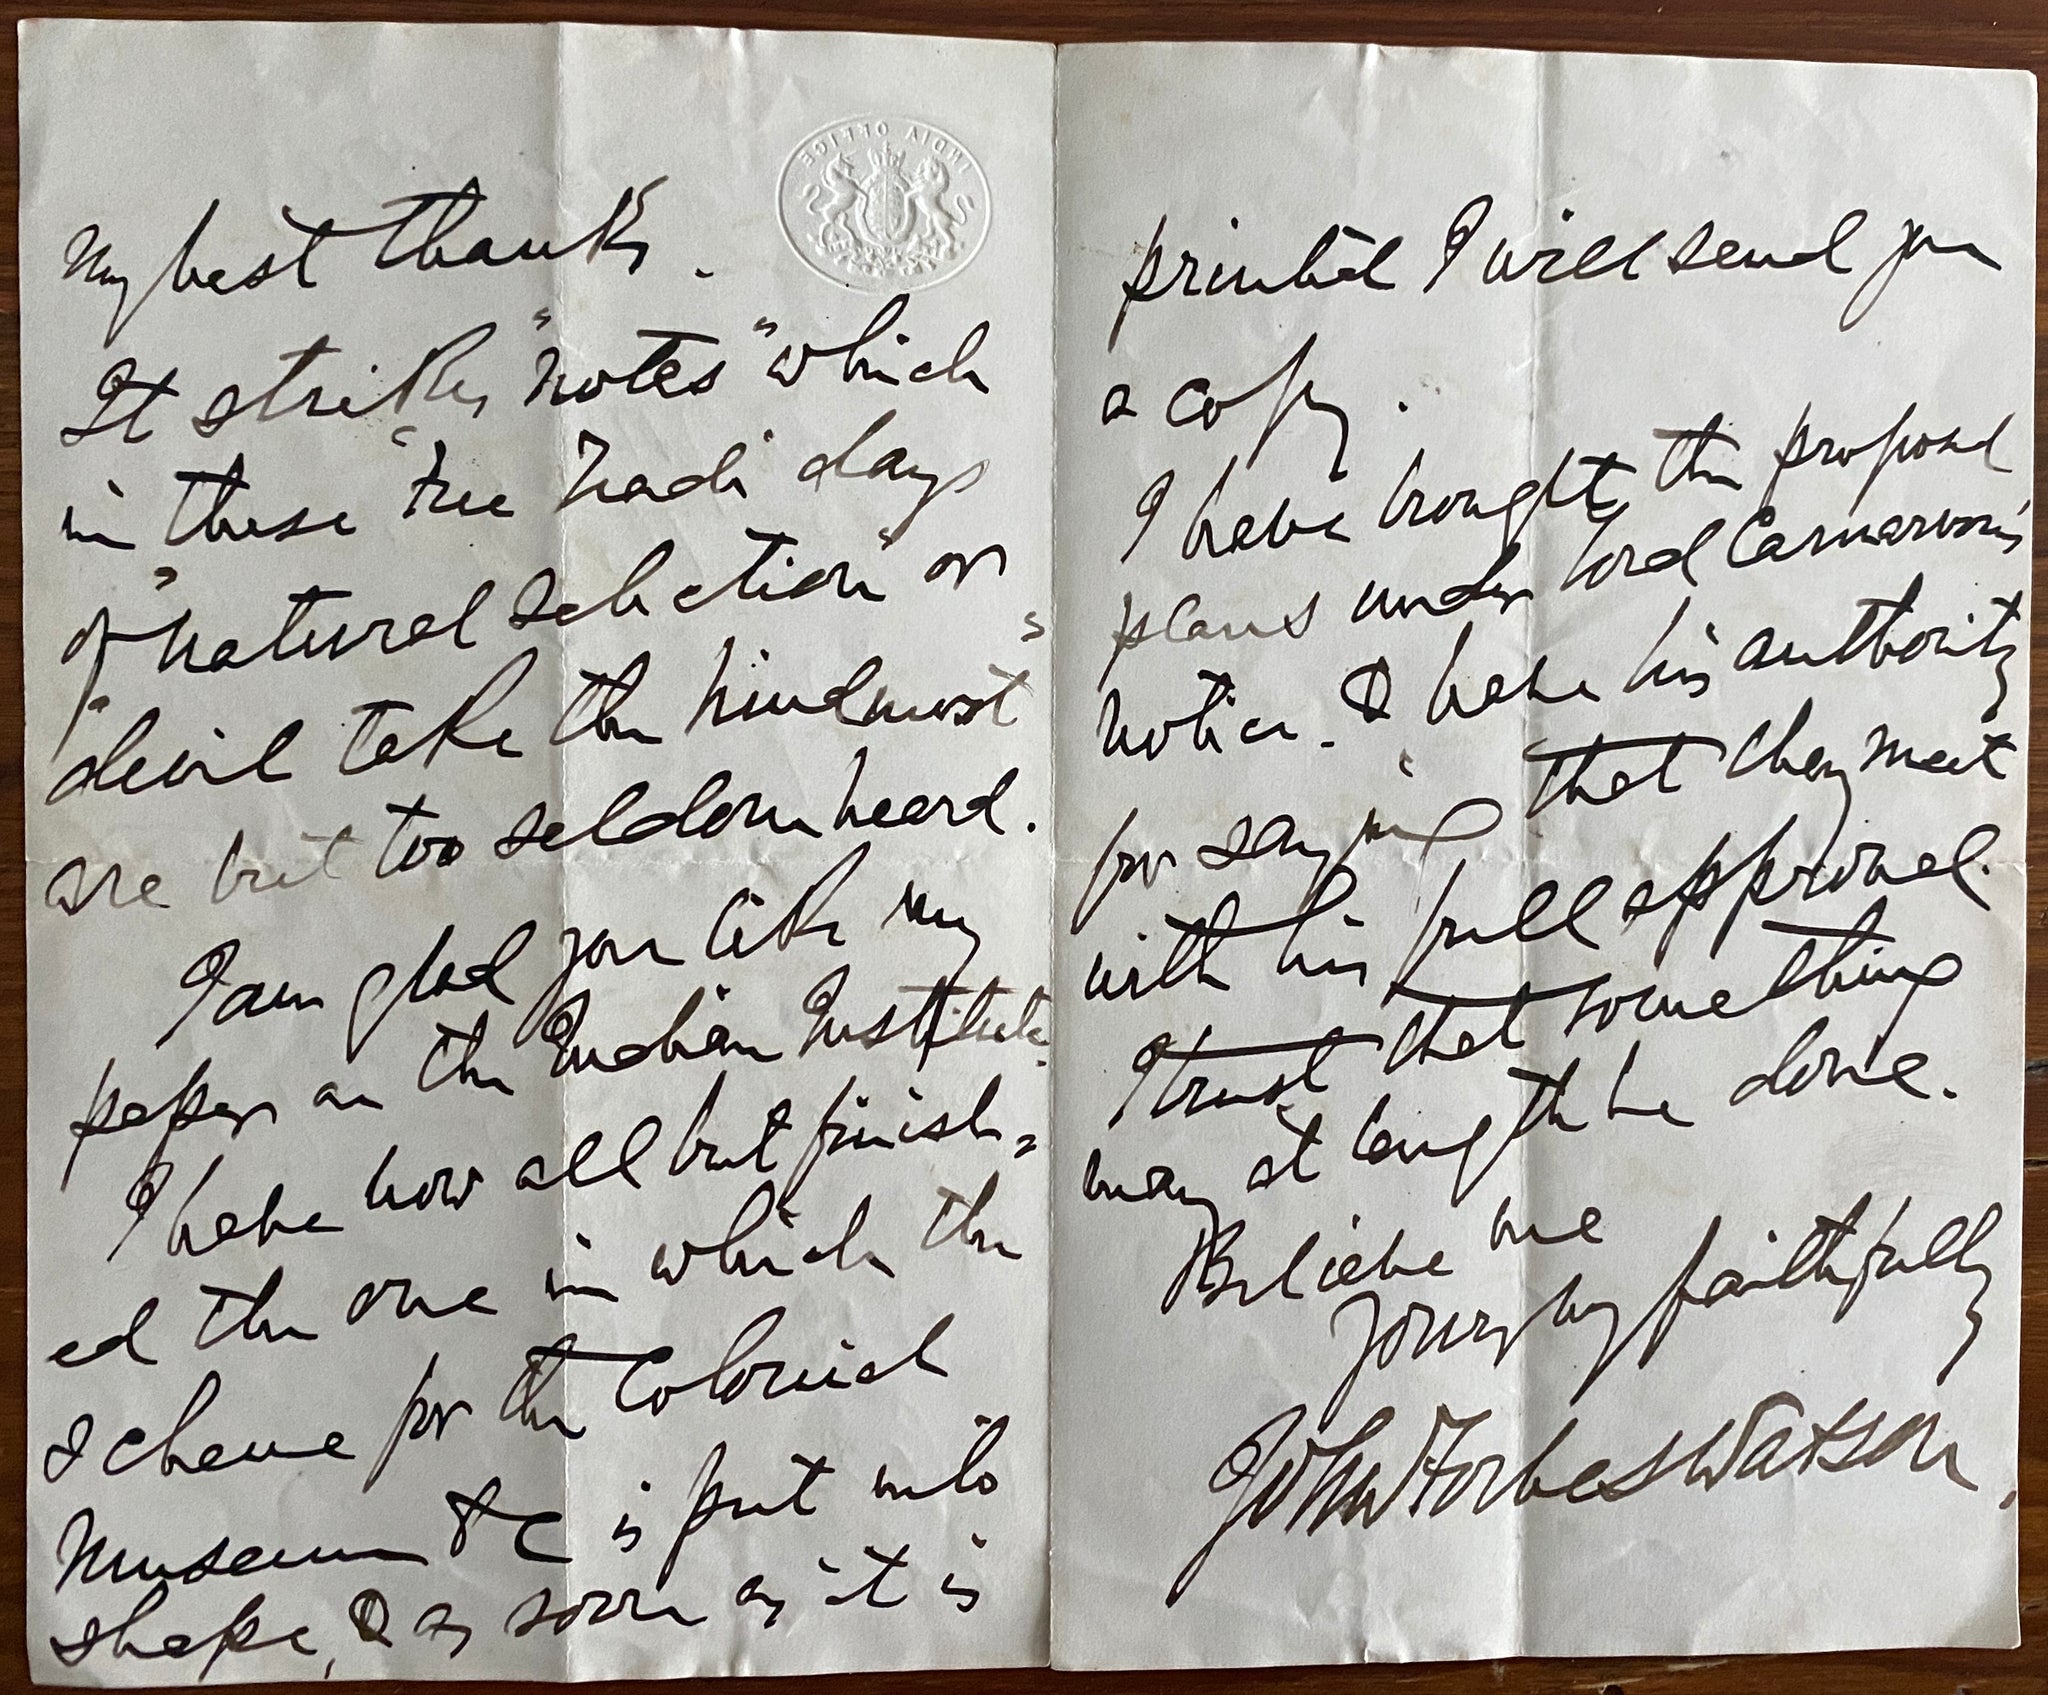 INDIA OFFICE
My best thanks.
It strikes "notes" which
in these "free trade" days
of "natural selection" or
"devil take the hindmost"
are but too seldom heard.
I am glad you like my
paper on the Indian Institute.
I have now all but finish=
ed the one in which the
scheme for the Colonial
Museum &c is put into
shape, & as soon as it is
printed I will send you
a copy.
I have brought the proposed
plans under Lord Carnarvon's
notice. & have his authority
for saying that they meet
with his full approval.
I trust that something
may at length be done.
Believe me
Yours very faithfully
John Forbes Watson.